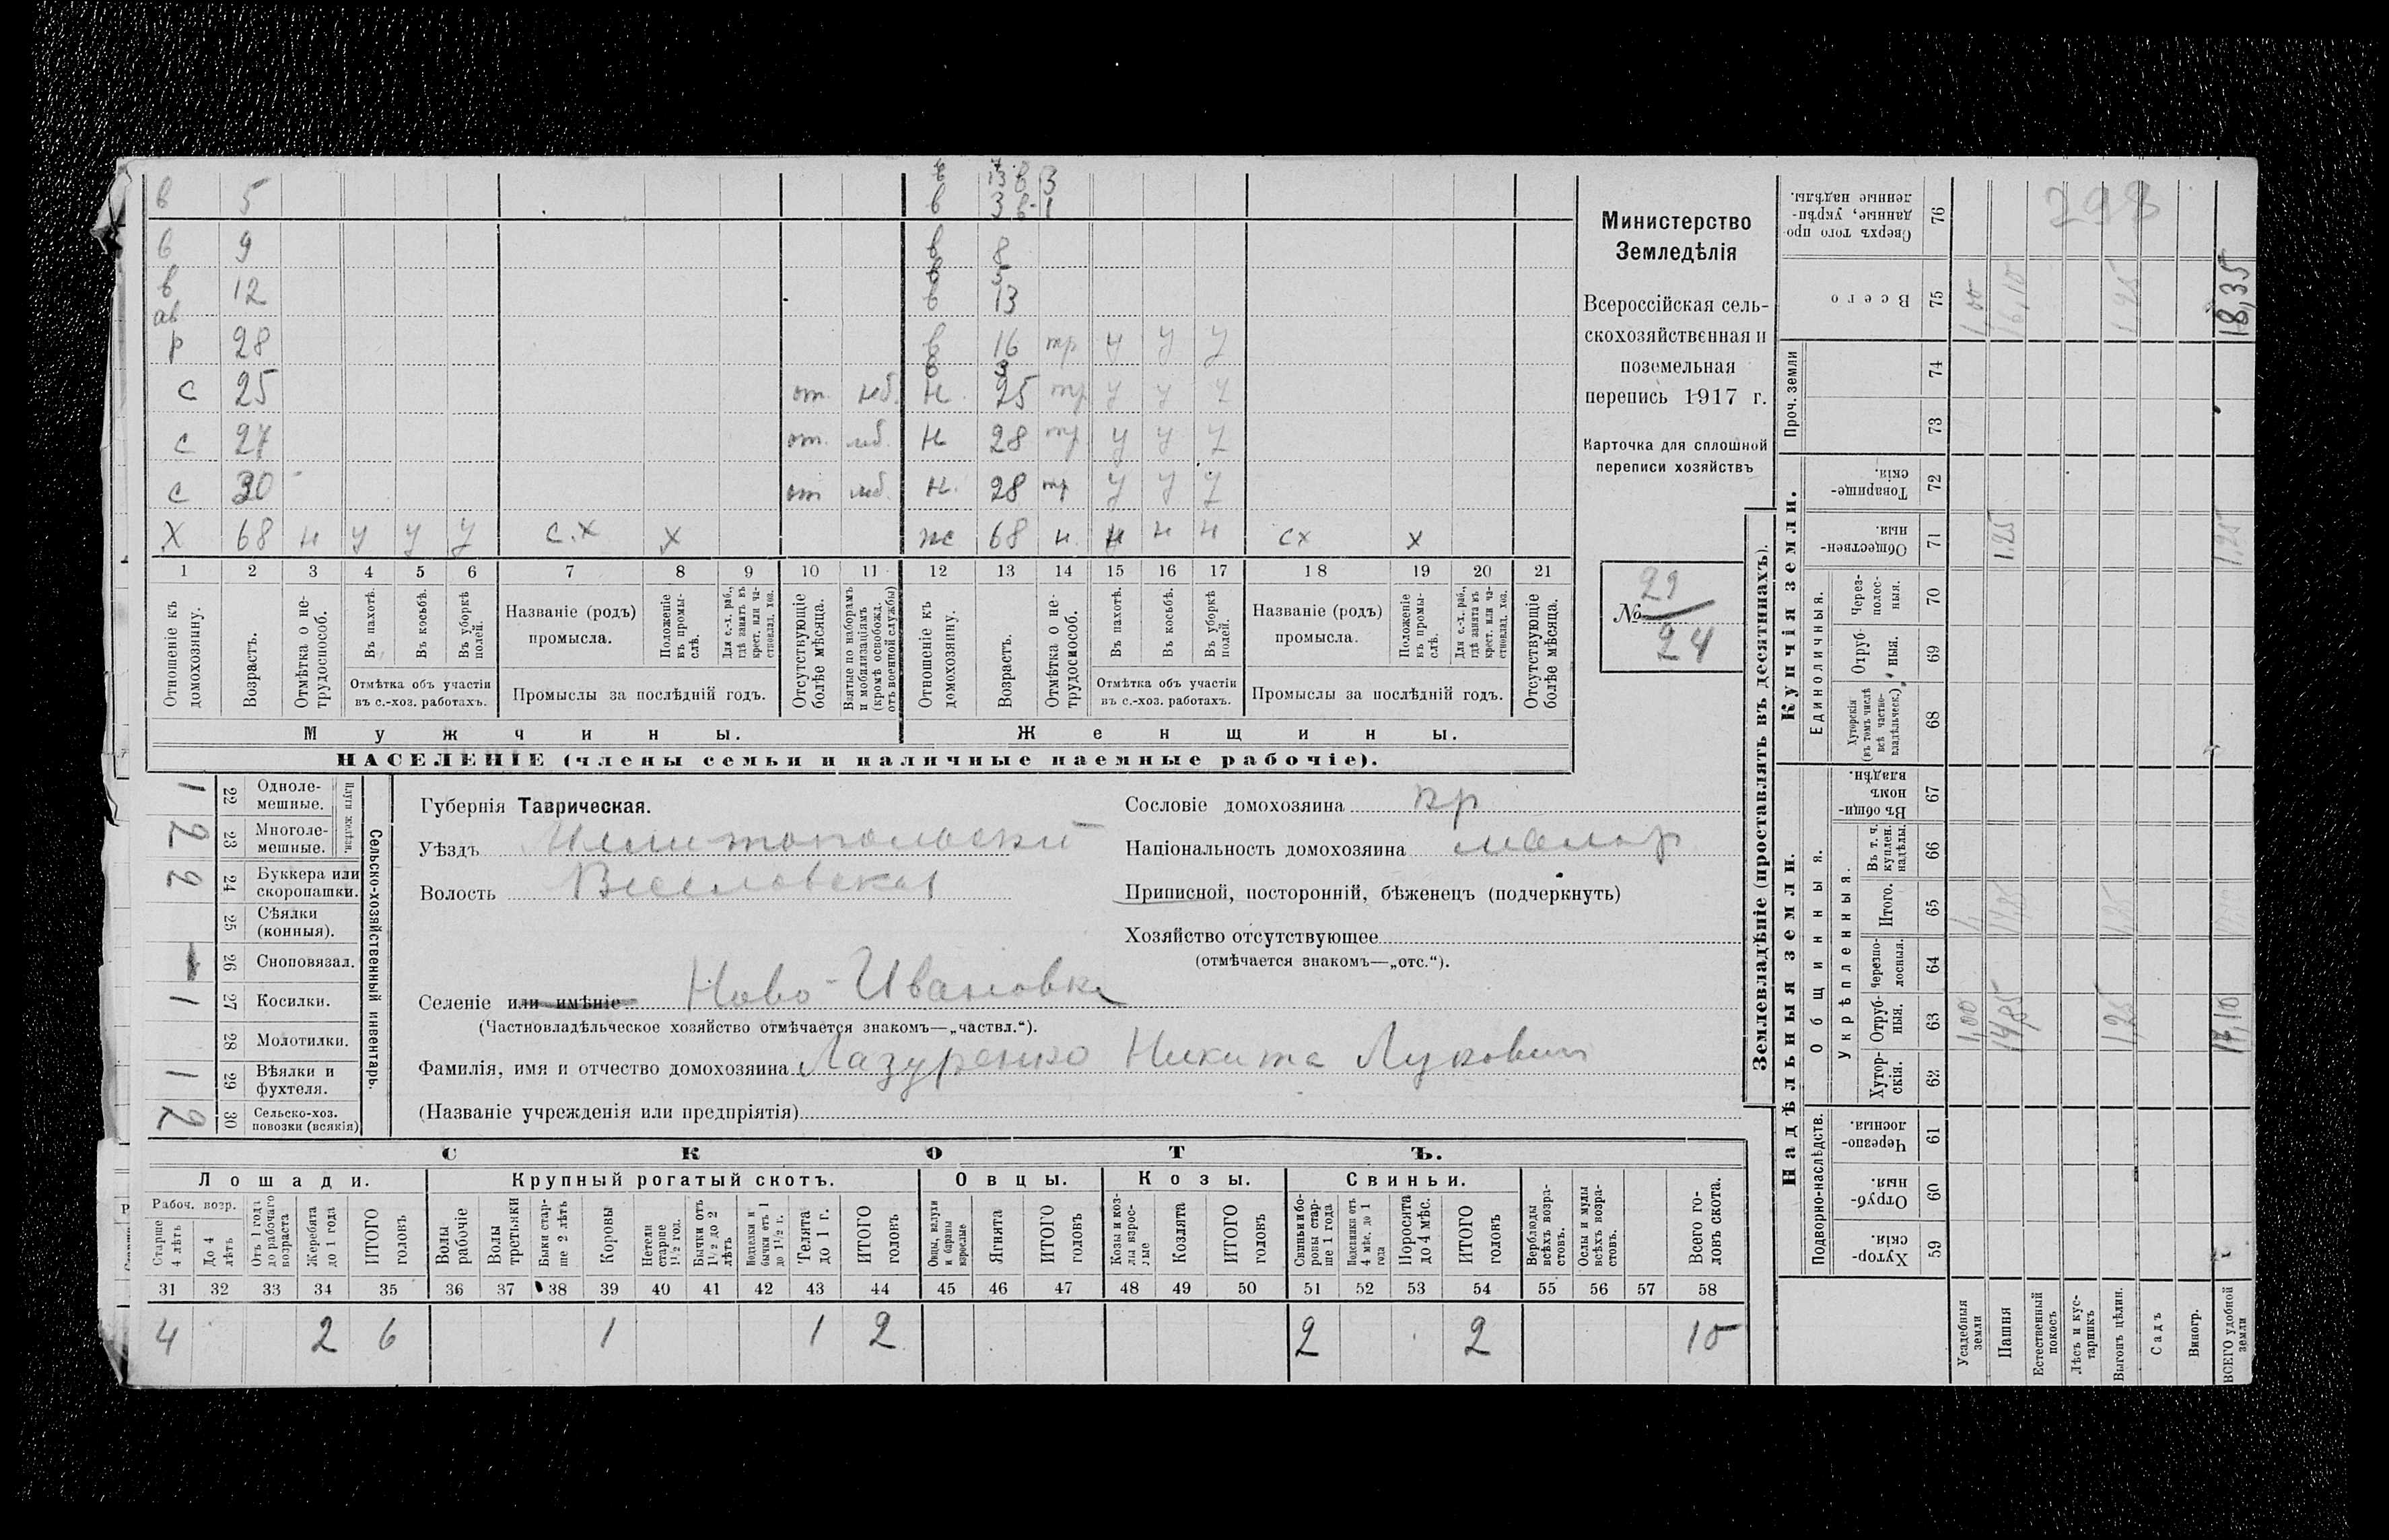 в 5 в 13 в 3
в 3 в-1
в 9 в 8
в 5
в 12 в 13
ав
р 28 в 16 тр у у у
в 3
с 25 от. мб. н. 25 тр у у у
с 27 от. мб. н 28 тр у у у
с 30 от мб. н. 28 тр у у у
х 68 н у у у с.х х же 68 н. н н н сх х
1 2 3 4 5 6 7 8 9 10 11 12 13 14 15 16 17 18 19 20 21
Отношеніе къ домохозяину.
Возрастъ.
Отмѣтка о не-трудоспособ.
Въ пахотѣ.
Въ косьбѣ.
Въ уборкѣ полей.
Отмѣтка объ участіи
въ с.-хоз. работахъ.
Названіе (родъ)
промысла.
Положеніе въ промы-слѣ.
Для с.-х. раб., гдѣ занятъ въ крест. или ча-стновлад. хоз.
Промыслы за послѣдній годъ.
Отсутствующіе болѣе мѣсяца.
Взятые по наборамъ и мобилизаціямъ (кромѣ освобожд. отъ военной службы)
Отношеніе къ домохозяину.
Возрастъ.
Отмѣтка о не-трудоспособ.
Въ пахотѣ.
Въ косьбѣ.
Въ уборкѣ полей.
Отмѣтка объ участіи
въ с.-хоз. работахъ.
Названіе (родъ)
промысла.
Положеніе въ промы-слѣ.
Для с.-х. раб., гдѣ занята въ крест. или ча-стновлад. хоз.
Промыслы за послѣдній годъ.
Отсутствующіе болѣе мѣсяца.
Мужчины. Женщины.
НАСЕЛЕНІЕ (члены семьи и наличные наемные рабочіе).
Министерство
Земледѣлія
Всероссійская сель-
скохозяйственная и
поземельная
перепись 1917 г.
Карточка для сплошной
переписи хозяйствъ
№ 29
24
Сельско-хозяйственный инвентарь.
Плуги желѣзн.
1 22 Одноле-мешные.
2 23 Многоле-мешные.
2 24 Буккера или скоропашки.
25 Сѣялки (конныя).
26 Сноповязал.
1 27 Косилки.
28 Молотилки.
1 29 Вѣялки и фухтеля.
2 30 Сельско-хоз. повозки (всякія)
Губернія Таврическая.
Уѣздъ Мелитопольский
Волость Веселовская
Селеніе или имѣніе Ново-Ивановка
(Частновладѣльческое хозяйство отмѣчается знакомъ—„частвл.“).
Фамилія, имя и отчество домохозяина Лазуренко Никита Лукович
(Названіе учрежденія или предпріятія)
Сословіе домохозяина кр
Національность домохозяина малор
Приписной, посторонній, бѣженецъ (подчеркнуть)
Хозяйство отсутствующее
(отмѣчается знакомъ—„отс.“).
СКОТЪ.
Лошади. Крупный рогатый скотъ. Овцы. Козы. Свиньи.
Рабоч. возр.
Старше 4 лѣтъ
До 4 лѣтъ
Отъ 1 года до рабочаго возраста
Жеребята до 1 года
ИТОГО головъ
Волы рабочіе
Волы третьяки
Быки стар-ше 2 лѣтъ
Коровы
Нетели старше 1½ год.
Бычки отъ 1½ до 2 лѣтъ
Подтелки и бычки отъ 1 до 1½ г.
Телята до 1 г.
ИТОГО головъ
Овцы, валухи и бараны взрослые
Ягнята
ИТОГО головъ
Козы и коз-лы взрос-лые
Козлята
ИТОГО головъ
Свиньи и бо-ровы стар-ше 1 года
Подсвинки отъ 4 мѣс. до 1 года
Поросята до 4 мѣс.
ИТОГО головъ
Верблюды всѣхъ возра-стовъ.
Ослы и мулы всѣхъ возра-стовъ.
Всего го-ловъ скота.
31 32 33 34 35 36 37 38 39 40 41 42 43 44 45 46 47 48 49 50 51 52 53 54 55 56 57 58
4 2 6 1 1 2 2 2 10
Землевладѣніе (проставлять въ десятинахъ).
Надѣльныя земли. Купчія земли.
Подворно-наслѣдств.
Общинныя.
Укрѣпленныя.
Единоличныя.
Проч. земли
Хутор-скія. 59
Отруб-ныя. 60
Черезпо-лосныя. 61
Хутор-скія. 62
Отруб-ныя. 63
Черезпо-лосныя. 64
Итого. 65
Въ т. ч. куплен. надѣлы. 66
Въ общи-номъ владѣн. 67
Хуторскія (въ томъ числѣ всѣ частно-владѣльческ.) 68
Отруб-ныя. 69
Через-полос-ныя. 70
Обществен-ныя. 71
Товарище-скія. 72
73
74
Всего 75
Сверхъ того про-данные, укрѣп-ленные надѣлы. 76
Усадебныя земли 1,00 1, 1,00
Пашня 14,85 14,85 1.25 16,10
Естественный покосъ
Лѣсъ и кус-тарникъ
Выгонъ цѣлин. 1,25 1,25 1,25
Садъ
Виногр.
ВСЕГО удобной земли 17,10 1,25 18,35
798